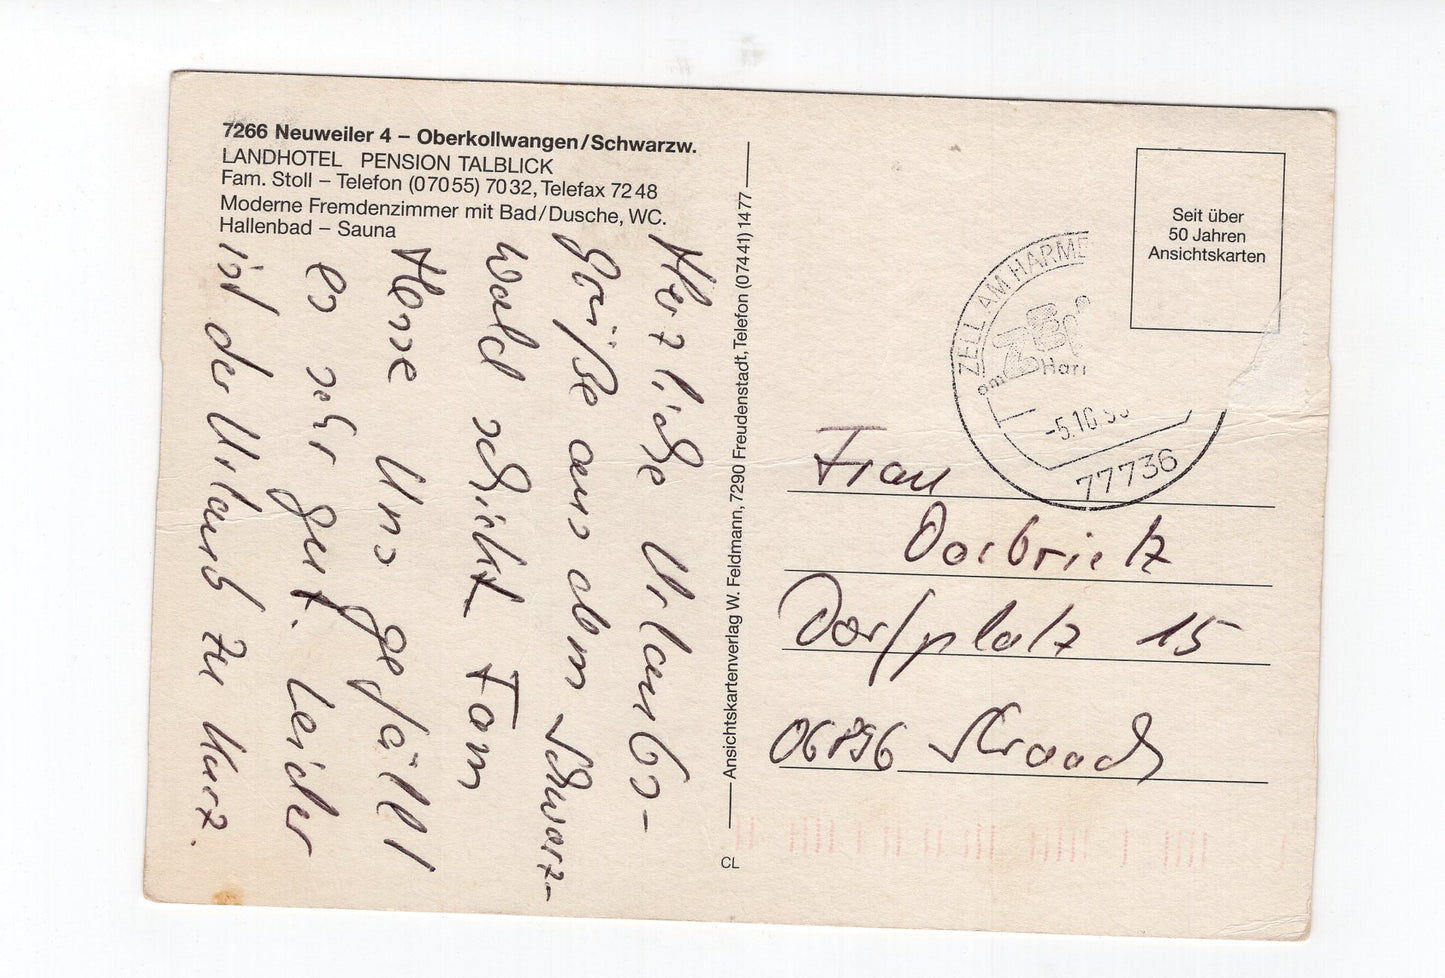 7266 Neuweiler 4 – Oberkollwangen/Schwarzw.
LANDHOTEL PENSION TALBLICK
Fam. Stoll – Telefon (07055) 7032, Telefax 7248
Moderne Fremdenzimmer mit Bad/Dusche, WC.
Hallenbad – Sauna
Herzliche Urlaubs-
grüße aus dem Schwarz-
wald schickt Fam
Hesse Uns gefällt
es sehr gut. Leider
ist der Urlaub zu kurz.
Ansichtskartenverlag W. Feldmann, 7290 Freudenstadt, Telefon (07441) 1477
CL
Seit über
50 Jahren
Ansichtskarten
ZELL AM HARME
am Har
-5.10.
77736
Frau
Dorbrietz
Dorfplatz 15
06896 Straach